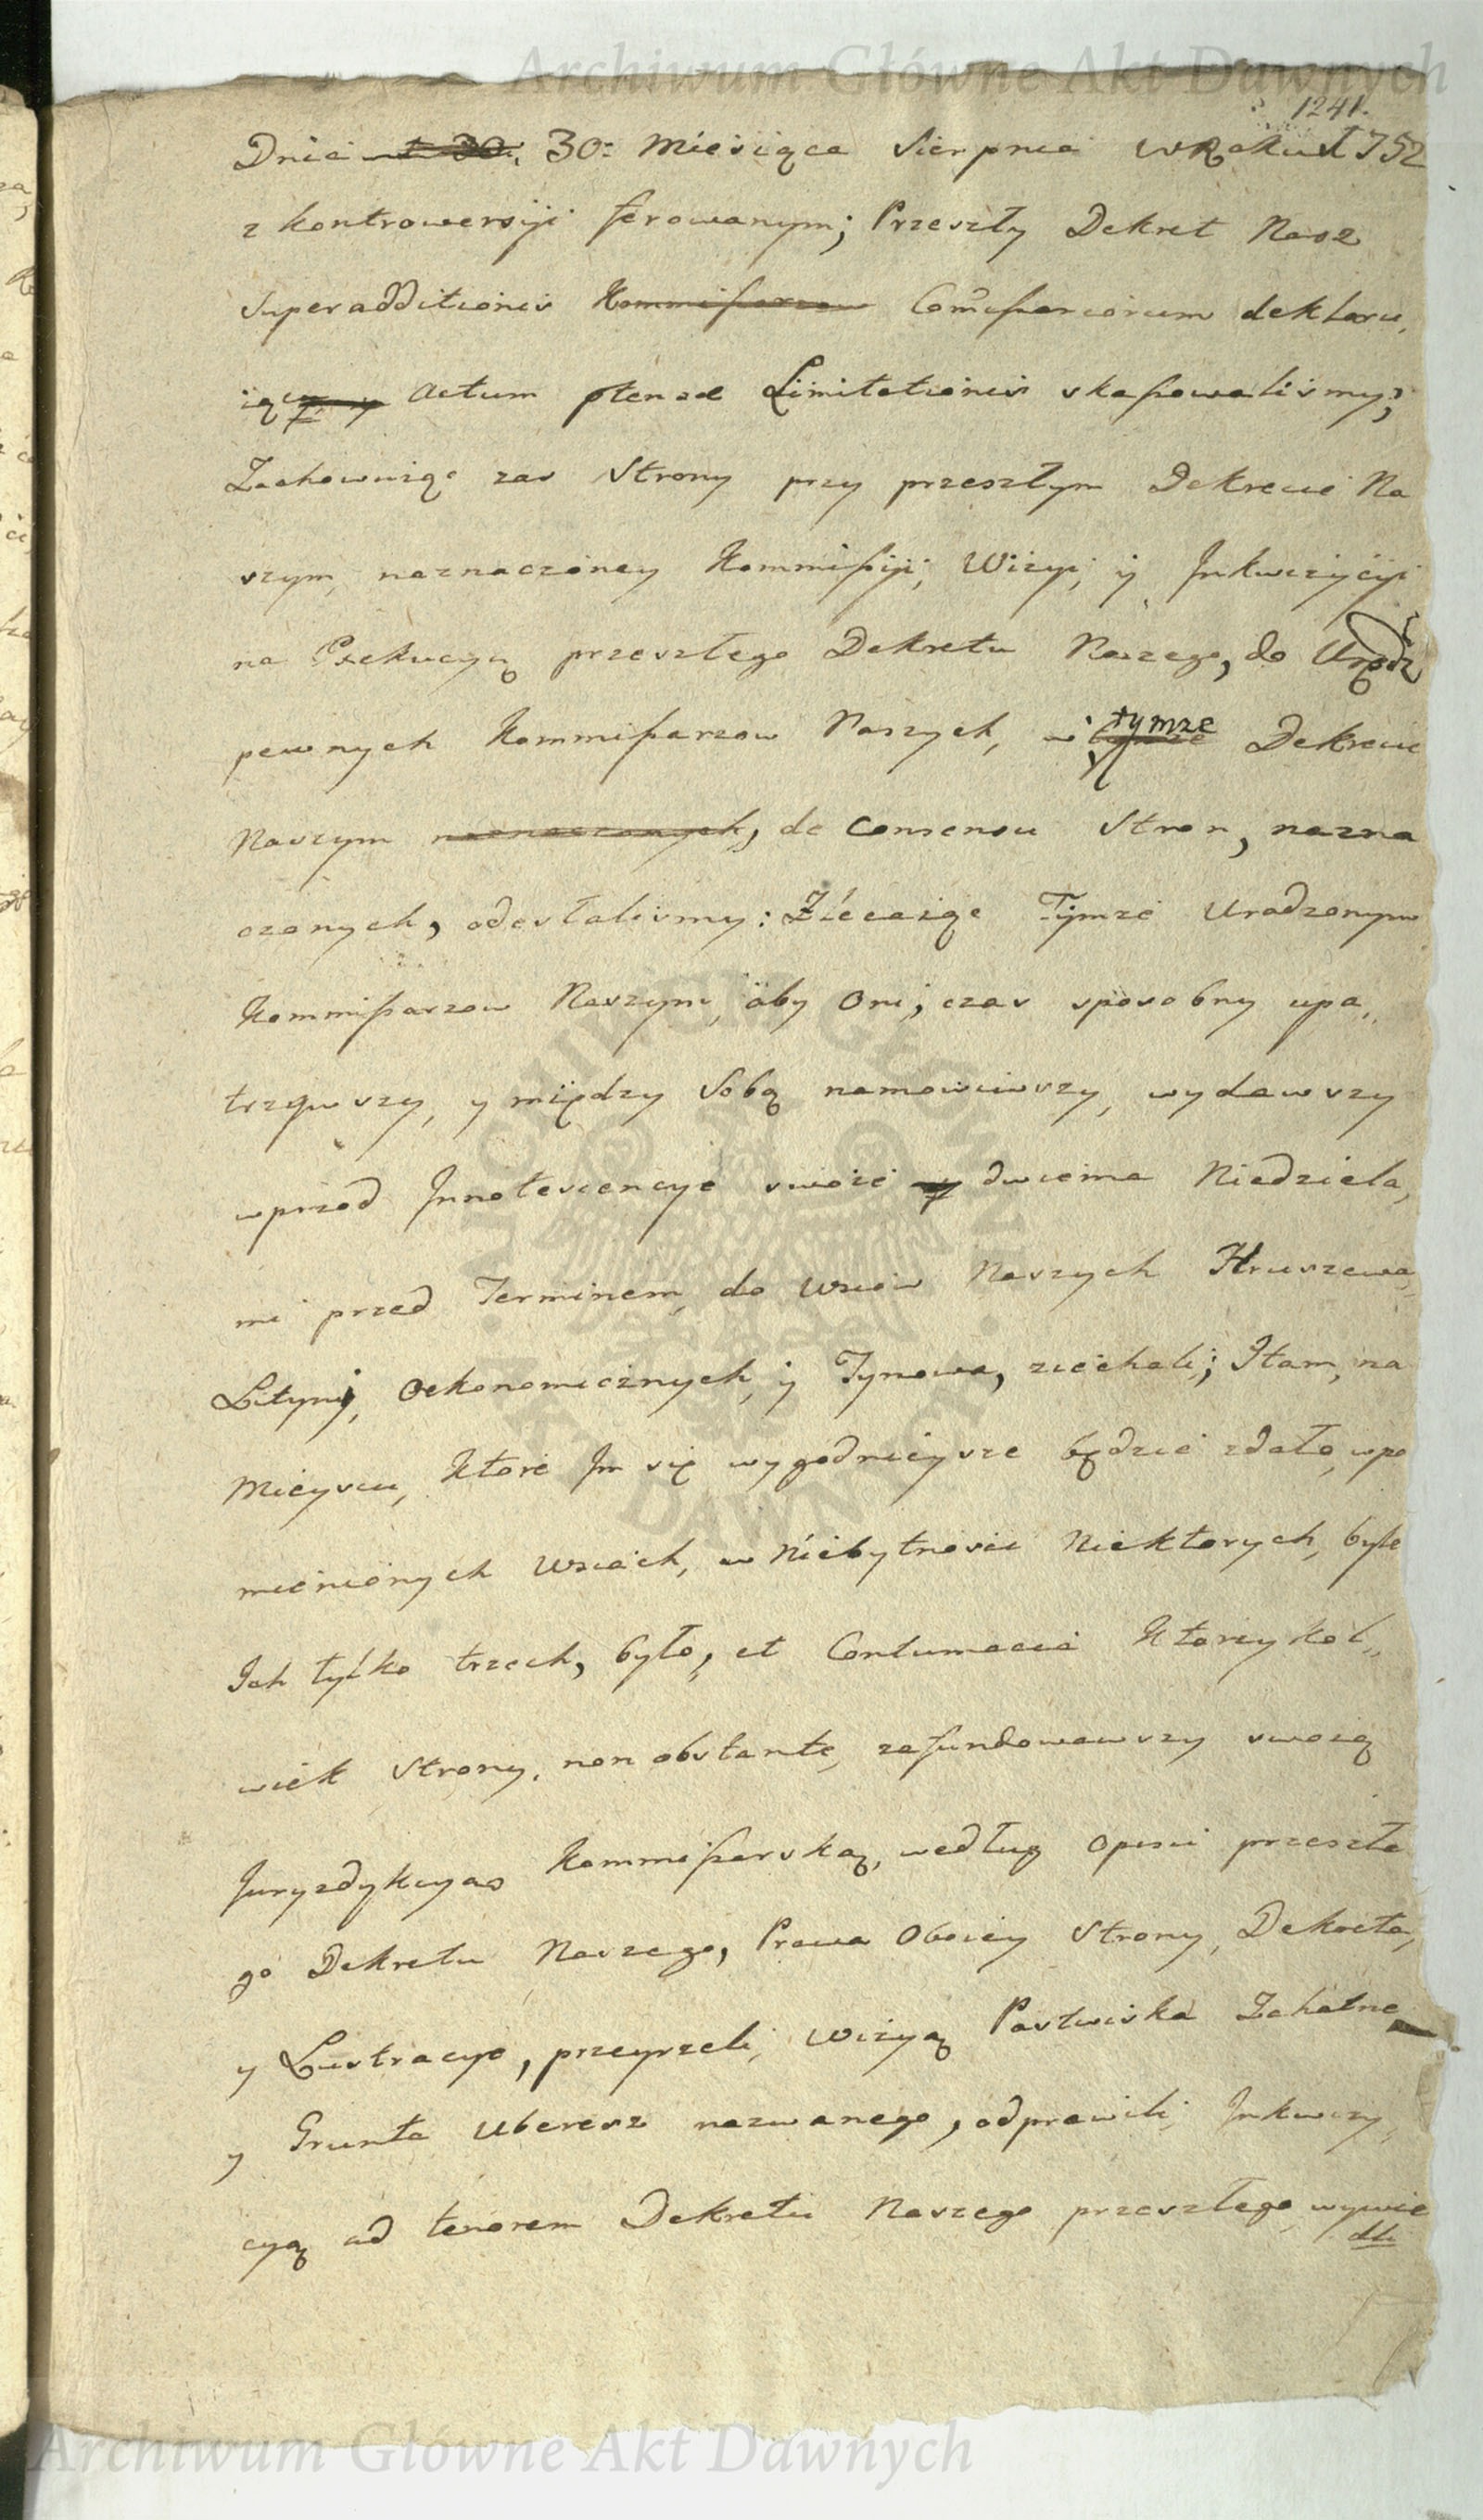 Archiwum Główne Akt Dawnych
1241.
Dnia 30: Miesiąca Sierpnia w Roku 1752
z kontrowersyi ferowanym; Przeszły Dekret Nasz
Superadditionis Kommissarzow Com̃issariorum deklaru,
iący Actum ptenae Limitationis skassowaliśmy;
Zachowuiąc zas Strony przy przeszłym Dekrecie Na
szym, naznaczoney Kommissyi, Wizyi, y Inkwizycyi
na Exekucyą przeszłego Dekretu Naszego, do Urodz
pewnych Kommissarzow Naszych, w tymze Dekrecie
Naszym naznaczonych, de consensu Stron, nazna
czonych, odesłalismy: Zlecaiąc Tymze Urodzonym
Kommissarzow Naszym, aby Oni, czas sposobny upa,,
trzywszy, y między Sobą namowiwszy, wydawszy
wprzod Innotescencye swoie y dwiema Niedziela,
mi przed Terminem, do Wsiow Naszych Hruszewa,
Lityni, Oekonomicznych, y Tynowa, ziechali; I tam, na
Mieyscu, ktore Im się wygodnieysze będzie zdało, wpo
mienionych Wsiach, w Niebytnosci Niektorych, byle
Ich tylko trzech, było, et Contumacia Ktorzykol,,
wiek Strony, non obstante, zafundowawszy swoią
Juryzdykcyą Kommissarską, według Opisu przeszłe
go Dekretu Naszego, Prawa Oboiey Strony, Dekreta,
y Lustracye, przeyrzeli, Wizyą Pastwiska Zahatne
y Grunta Uberesz nazwanego, odprawili, Inkwizy,
cyą ad tenorem Dekretu Naszego przeszłego wywie
dli
Archiwum Główne Akt Dawnych